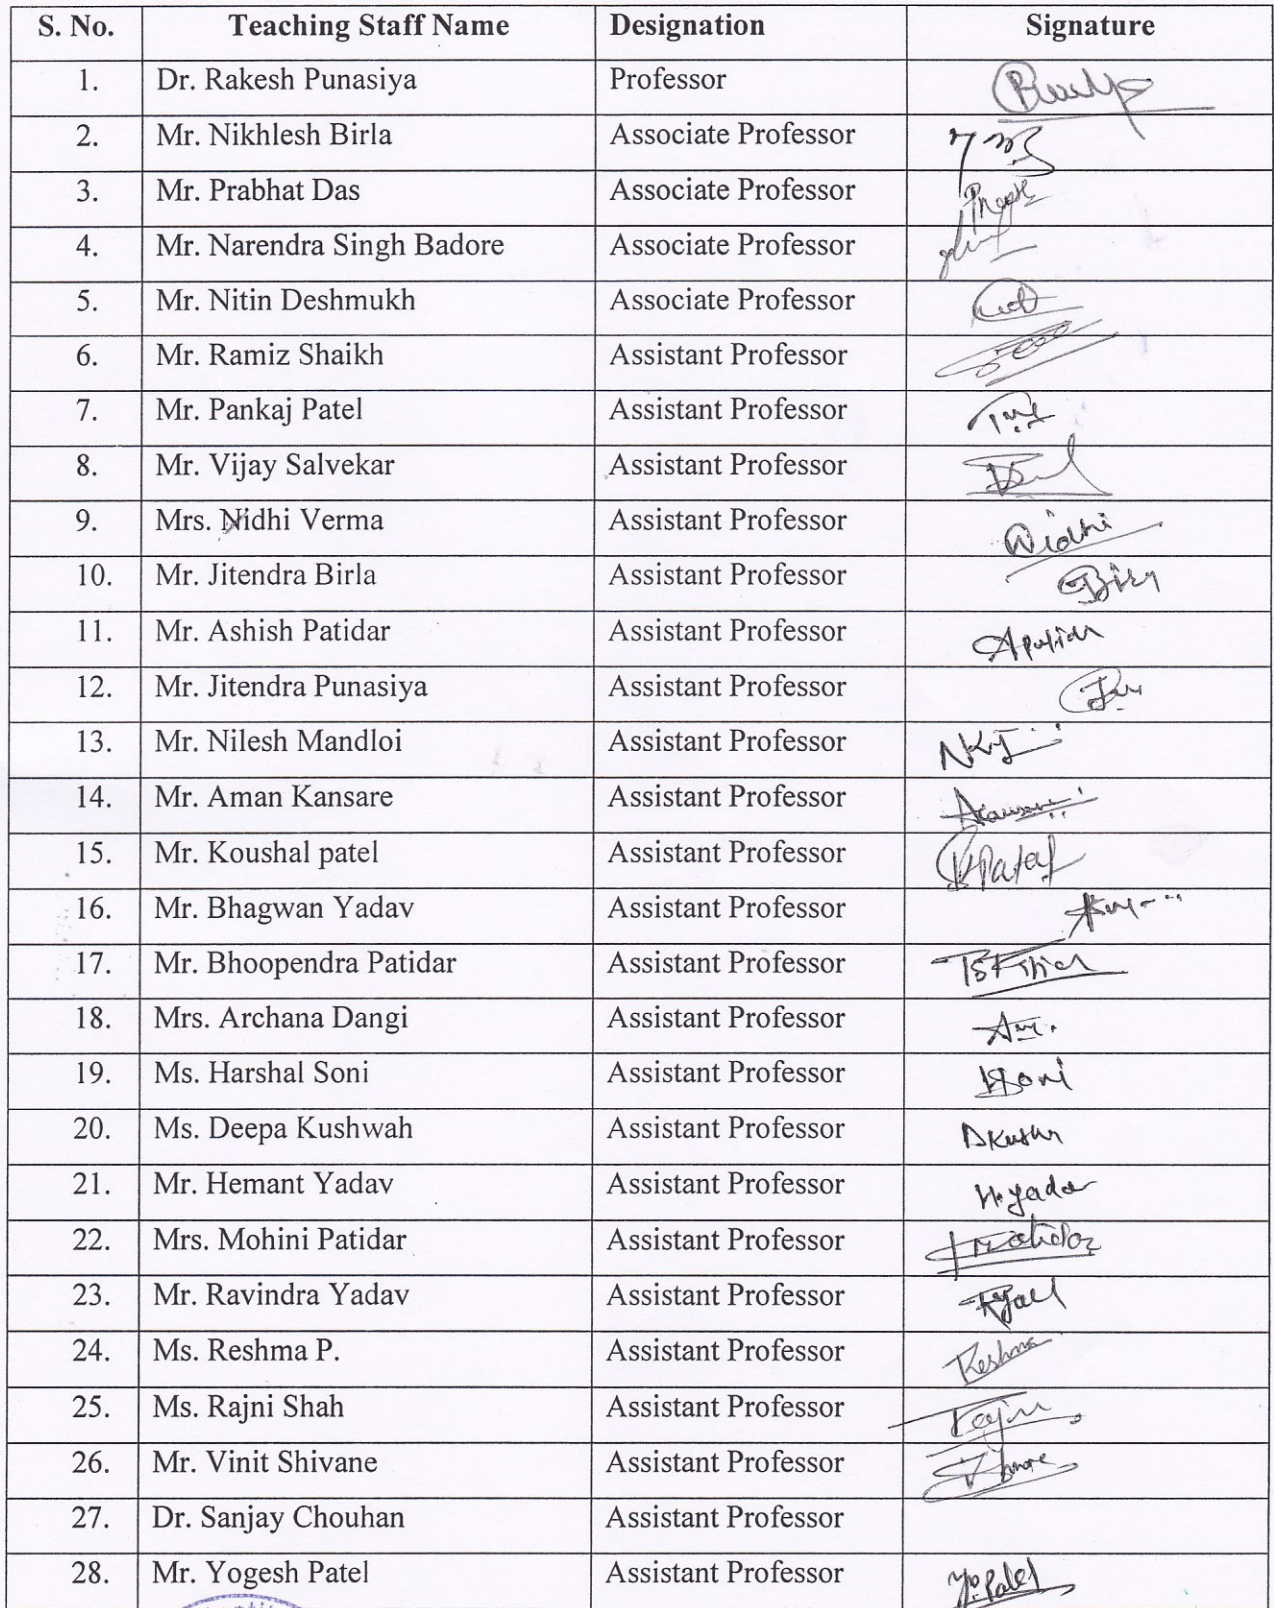 S. No. Teaching Staff Name Designation Signature
1. Dr. Rakesh Punasiya Professor
2. Mr. Nikhlesh Birla Associate Professor
3. Mr. Prabhat Das Associate Professor
4. Mr. Narendra Singh Badore Associate Professor
5. Mr. Nitin Deshmukh Associate Professor
6. Mr. Ramiz Shaikh Assistant Professor
7. Mr. Pankaj Patel Assistant Professor
8. Mr. Vijay Salvekar Assistant Professor
9. Mrs. Nidhi Verma Assistant Professor Nidhi
10. Mr. Jitendra Birla Assistant Professor
11. Mr. Ashish Patidar Assistant Professor
12. Mr. Jitendra Punasiya Assistant Professor
13. Mr. Nilesh Mandloi Assistant Professor
14. Mr. Aman Kansare Assistant Professor
15. Mr. Koushal patel Assistant Professor KPatel
16. Mr. Bhagwan Yadav Assistant Professor
17. Mr. Bhoopendra Patidar Assistant Professor
18. Mrs. Archana Dangi Assistant Professor
19. Ms. Harshal Soni Assistant Professor HSoni
20. Ms. Deepa Kushwah Assistant Professor
21. Mr. Hemant Yadav Assistant Professor
22. Mrs. Mohini Patidar Assistant Professor
23. Mr. Ravindra Yadav Assistant Professor
24. Ms. Reshma P. Assistant Professor Reshma
25. Ms. Rajni Shah Assistant Professor
26. Mr. Vinit Shivane Assistant Professor
27. Dr. Sanjay Chouhan Assistant Professor
28. Mr. Yogesh Patel Assistant Professor Yo.Patel